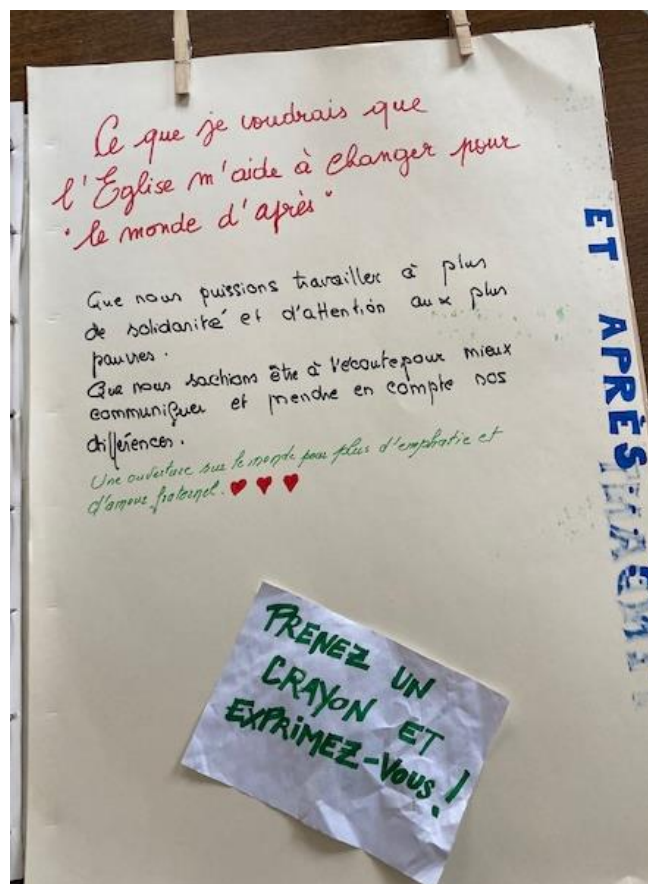 Ce que je voudrais que
l'Eglise m'aide à changer pour
"le monde d'après"
Que nous puissions travailler à plus
de solidarité et d'attention aux plus
pauvres.
Que nous sachions être à l'ecoute pour mieux
communiquer et prendre en compte nos
différences.
Une ouverture sur le monde pour plus d'emphatie et
d'amour fraternel. ♥ ♥ ♥
PRENEZ UN
CRAYON ET
EXPRIMEZ-VOUS!
ET APRÈS